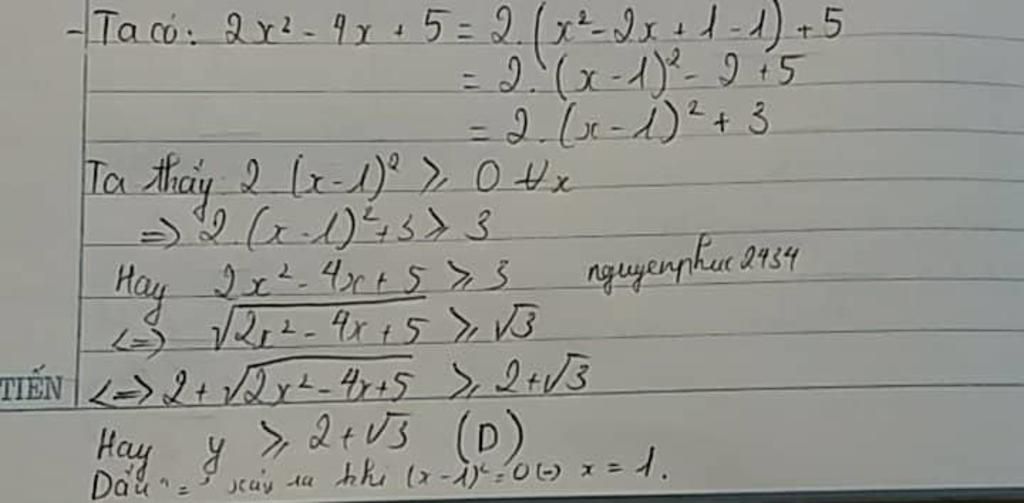 - Ta có: 2x² - 4x + 5 = 2.(x² - 2x + 1 - 1) + 5
= 2.(x - 1)² - 2 + 5
= 2.(x - 1)² + 3
Ta thấy 2 (x - 1)² ⩾ 0 ∀x
=> 2.(x - 1)² + 3 ⩾ 3
Hay 2x² - 4x + 5 ⩾ 3 nguyenphuc2434
<=> √(2x² - 4x + 5) ⩾ √3
TIẾN <=> 2 + √(2x² - 4x + 5) ⩾ 2 + √3
Hay y ⩾ 2 + √3 (D)
Dấu "=" xảy ra khi (x - 1)² = 0 (-) x = 1.